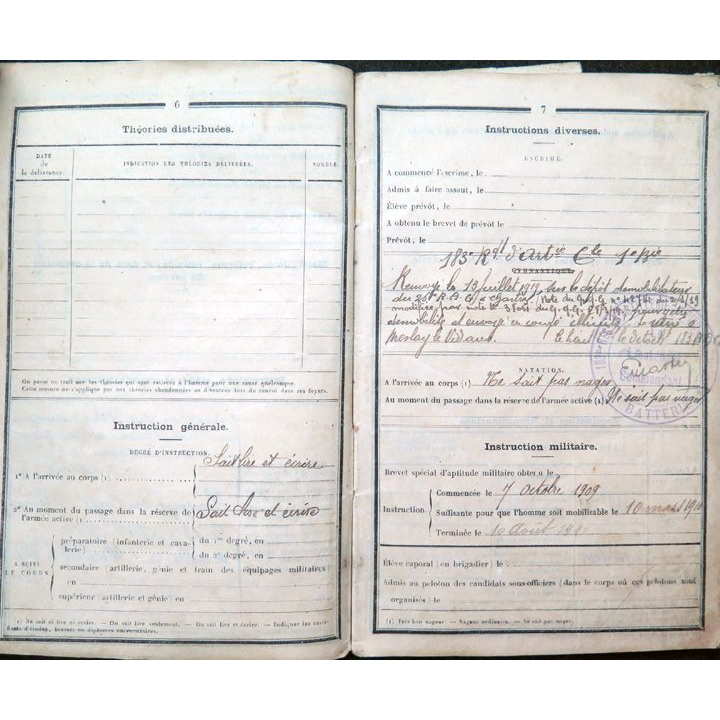 6
Théories distribuées.
DATE de la délivrance.
INDICATION DES THÉORIES DÉLIVRÉES.
NOMBRE.
On passe un trait sur les théories qui sont retirées à l'homme pour une cause quelconque.
Cette mesure ne s'applique pas aux théories abandonnées au détenteur lors du renvoi dans ses foyers.
Instruction générale.
DEGRÉ D'INSTRUCTION.
1° A l'arrivée au corps (1) Sait lire et écrire
2° Au moment du passage dans la réserve de
l'armée active (1) Sait lire et écrire
A SUIVI LE COURS
préparatoire (infanterie et cavalerie)
du 1er degré, en
du 2e degré, en
secondaire (artillerie, génie et train des équipages militaires)
en
supérieur (artillerie et génie) en
(1) Ne sait ni lire ni écrire. — On sait lire seulement. — On sait lire et écrire. — Indiquer les certi-
ficats d'études, brevets ou diplômes universitaires.
7
Instructions diverses.
ESCRIME.
A commencé l'escrime, le
Admis à faire assaut, le
Élève prévôt, le
A obtenu le brevet de prévôt le
Prévôt, le
183e Rgt d'Artie Cle 1e Bie
GYMNASTIQUE.
Renvoyé le 13 Juillet 1919 sur le dépôt démobilisateur
du R.A.C. à Chartres. Note du G.Q.G. n°
modifiée par note n° du G.Q.G.
démobilisé et envoyé en congé illimité se retire à
Meslay le Vidame
NATATION.
A l'arrivée au corps (1) Ne sait pas nager
Au moment du passage dans la réserve de l'armée active (1) Ne sait pas nager
BATTERIE
Instruction militaire.
Brevet spécial d'aptitude militaire obtenu le
Instruction
Commencée le 7 octobre 1909
Suffisante pour que l'homme soit mobilisable le 10 mars
Terminée le 10 Août
Élève caporal (ou brigadier) le
Admis au peloton des candidats sous-officiers (dans le corps où ces pelotons sont
organisés) le
(1) Très bon nageur. — Nageur ordinaire. — Ne sait pas nager.